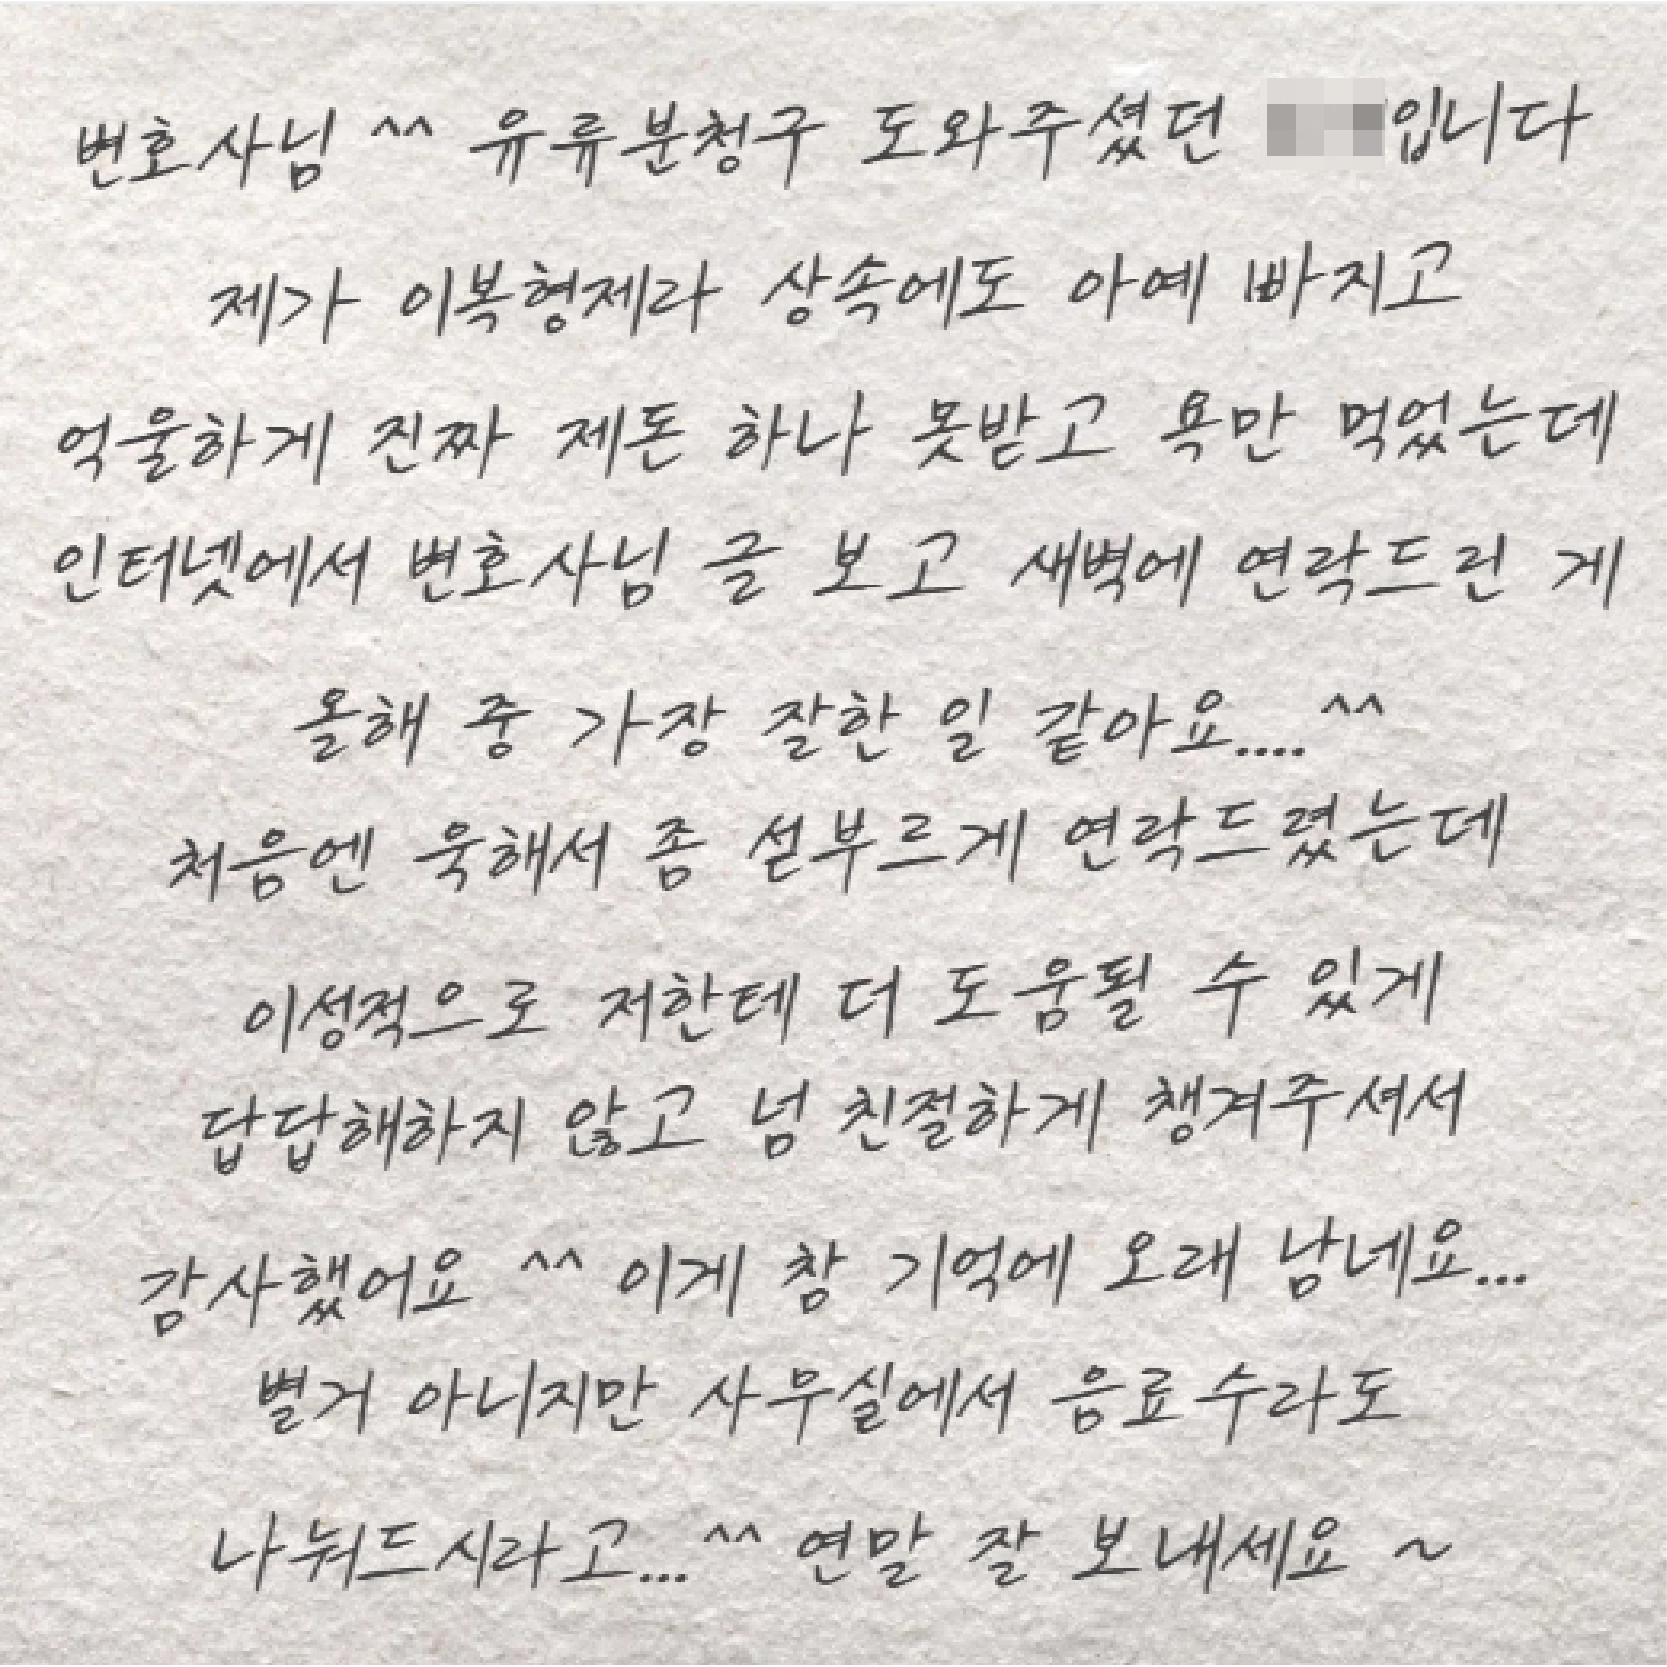 변호사님 ^^ 유류분청구 도와주셨던 입니다
제가 이복형제라 상속에도 아예 빠지고
억울하게 진짜 제돈 하나 못받고 욕만 먹었는데
인터넷에서 변호사님 글 보고 새벽에 연락드린 게
올해 중 가장 잘한 일 같아요....^^
처음엔 욱해서 좀 섣부르게 연락드렸는데
이성적으로 저한테 더 도움될 수 있게
답답해하지 않고 넘 친절하게 챙겨주셔서
감사했어요 ^^ 이게 참 기억에 오래 남네요...
별거 아니지만 사무실에서 음료수라도
나눠드시라고...^^ 연말 잘 보내세요 ~